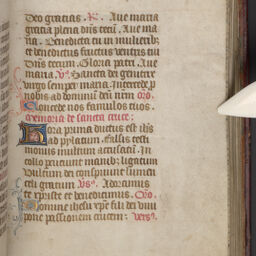 Deo gratias. R. Aue maria
gratia plena dns tecu. Aue ma
ria. Benedicta tu in mulierib;
et benedictus fructus ventris tui
Dns tecum. Gloria patri. Aue
maria. Vs. Sancta dei genitrix
virgo semper maria. Intercede p
nobis ad dominu deu nrm oro.
Concede nos famulos tuos
Memoria de sancta cruce:
Hora prima ductus est ihs
ad pylatum. Falsis testi
moniis multum accusatu. In
collo percutiunt manib; ligatum
Vultum dei conspuunt lumen
celi gratum vs. Adoramus
te xpriste et benedicimus. Oro.
Domine ihesu xpe fili dei viui
pone passionem crucem: vers.